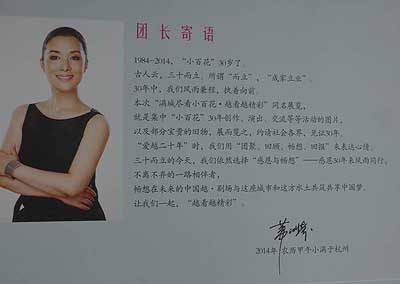 团长寄语
1984-2014，“小百花”30岁了。
古人云，三十而立。所谓“而立”，“成家立业”。
30年中，我们风雨兼程，执着向前。
本次“满城尽看小百花·越看越精彩”同名展览，
就是集中“小百花”30年创作、演出、交流等等活动的图片，
以及部分宝贵的回物，展而览之，约请社会各界，见证30年。
“爱越二十年”时，我们用“团聚、回顾、畅想、回报”来表达心情。
三十而立的今天，我们依然选择“感恩与畅想”——感恩30年来风雨同行、
不离不弃的一路相伴者，
畅想在未来的中国越·剧场与这座城市和这方水土共筑共享中国梦。
让我们一起，“越看越精彩”。
2014年 农历甲午小满于杭州